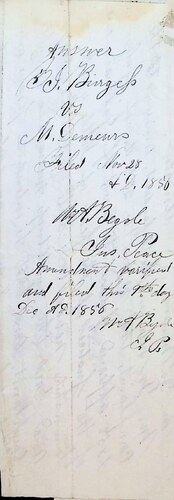 Answer
T. J. Burgess
vs
M. Demeurs
Filed Nov 28
A D. 1856
Wm A Begole
Jus. Peace
Amendment verified
and filed this 9th day
Dec AD. 1856
Wm A Begole
J P.